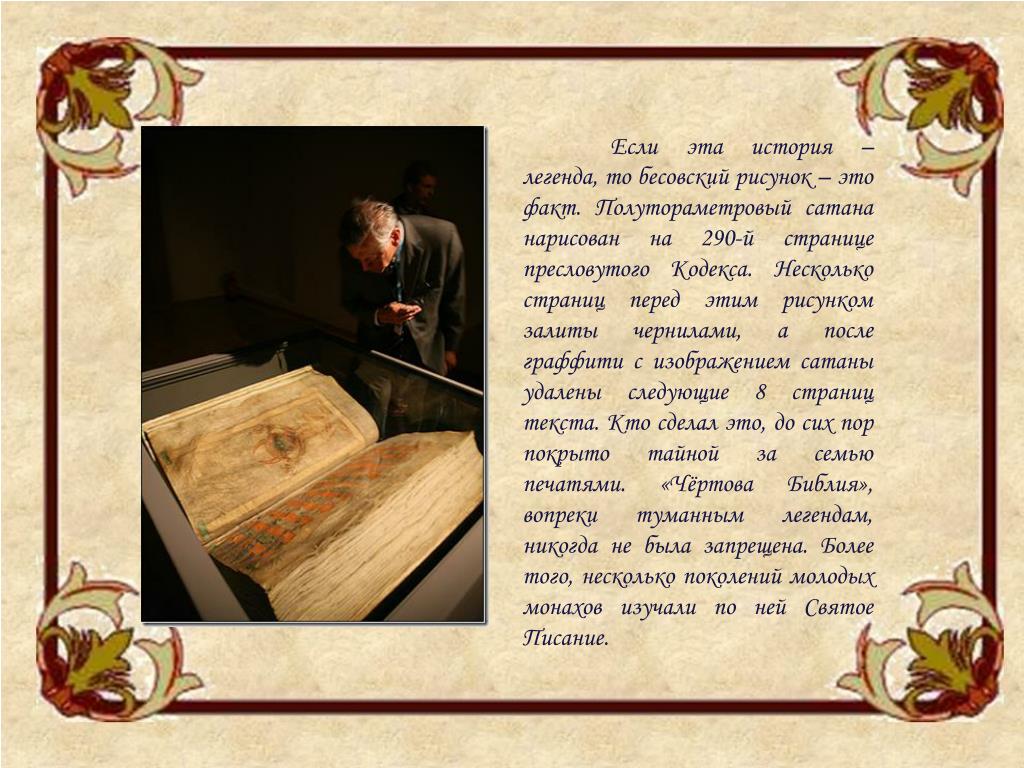 Если эта история –
легенда, то бесовский рисунок – это
факт. Полутораметровый сатана
нарисован на 290-й странице
пресловутого Кодекса. Несколько
страниц перед этим рисунком
залиты чернилами, а после
граффити с изображением сатаны
удалены следующие 8 страниц
текста. Кто сделал это, до сих пор
покрыто тайной за семью
печатями. «Чёртова Библия»,
вопреки туманным легендам,
никогда не была запрещена. Более
того, несколько поколений молодых
монахов изучали по ней Святое
Писание.